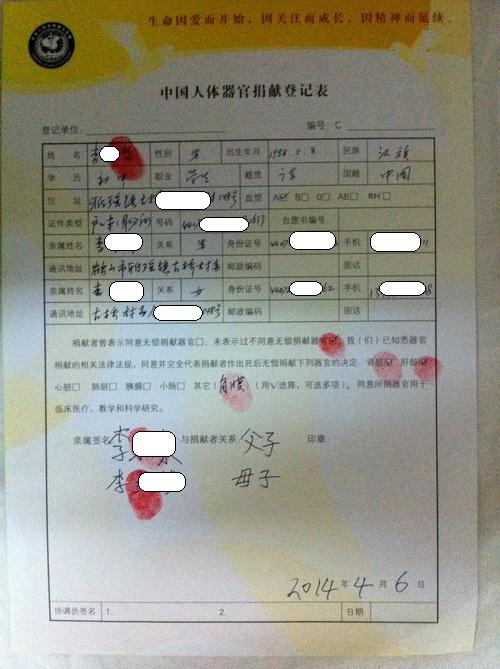 生命因爱而开始，因关注而成长，因精神而延续。
中国人体器官捐献登记表
登记单位： 编号：C
姓名 李 性别 男 出生年月 1998.5.8 民族 汉族
学历 初中 职业 学生 籍贯 国籍 中国
住址 雅瑶镇古桥 血型 A☑ B□ O□ AB□ RH□
证件类型 号码 自愿书编号
亲属姓名 李 关系 男 身份证号 手机
通讯地址 鹤山市雅瑶镇古桥村委 邮政编码 固话
亲属姓名 李 关系 女 身份证号 手机
通讯地址 古桥村委 邮政编码 固话
捐献者曾表示同意无偿捐献器官□；未表示过不同意无偿捐献器官☑。我（们）已知悉器官
捐献的相关法律法规，同意并完全代表捐献者作出死后无偿捐献下列器官的决定：肾脏☑ 肝脏☑
心脏□ 肺脏□ 胰腺□ 小肠□ 其它（角膜）（用√选择，可选多项）。同意所捐器官用于
临床医疗、教学和科学研究。
亲属签名 李 与捐献者关系 父子 印章：
李 母子
2014年4月6日
协调员签名 1. 2. 日期